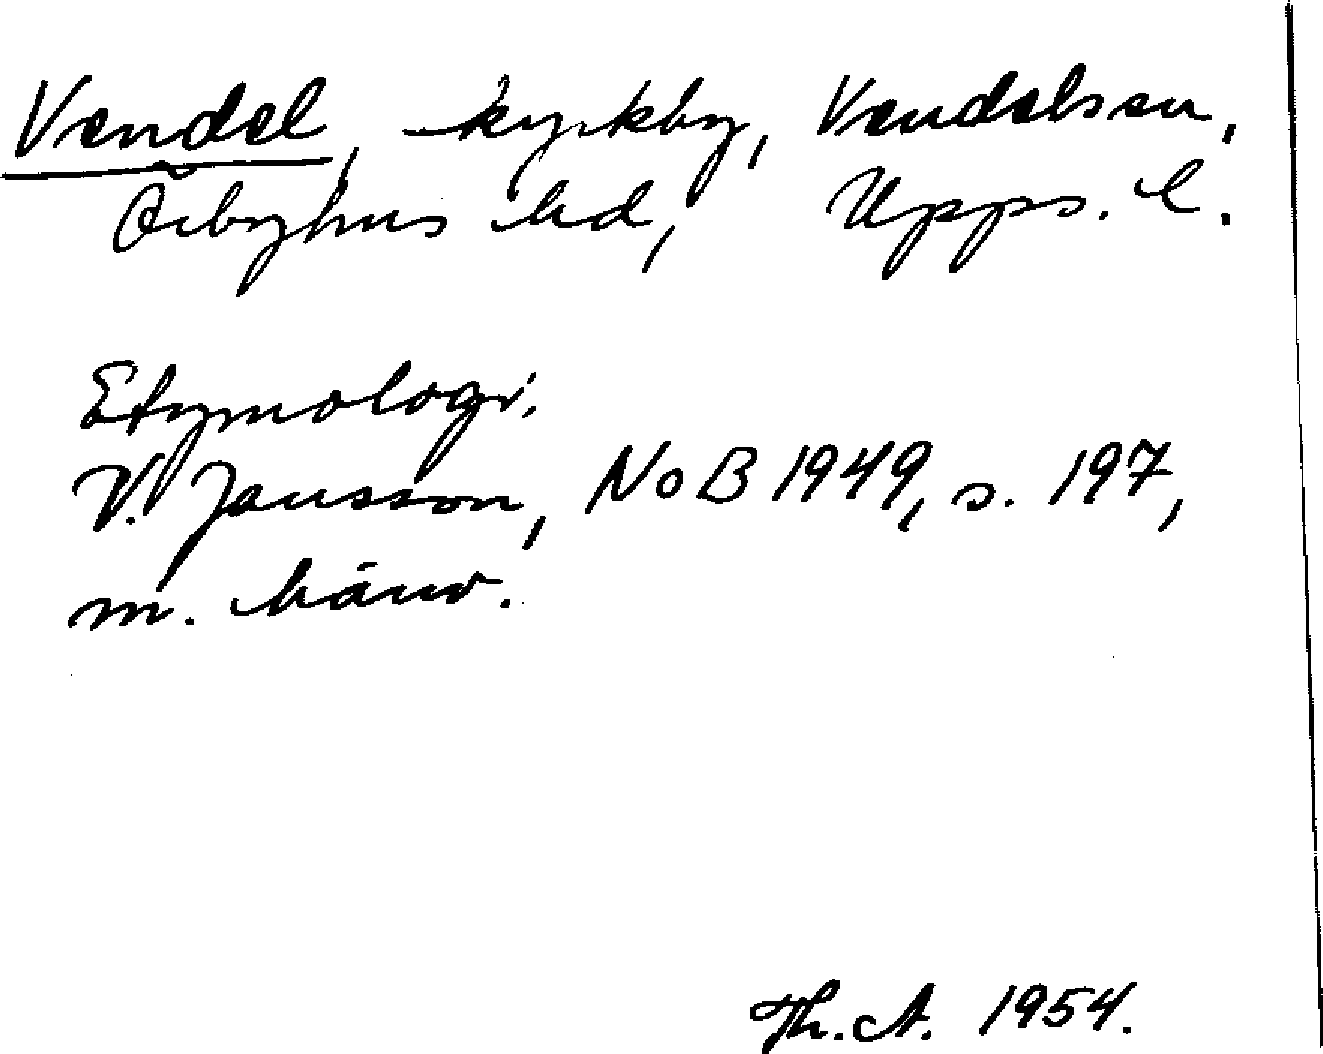 Vendel, kyrkby, Vendels sn,
Örbyhus hd, Upps. l.
Etymologi.
V. Jansson, NoB 1949, s. 197,
m. hänv.
Th. A. 1954.